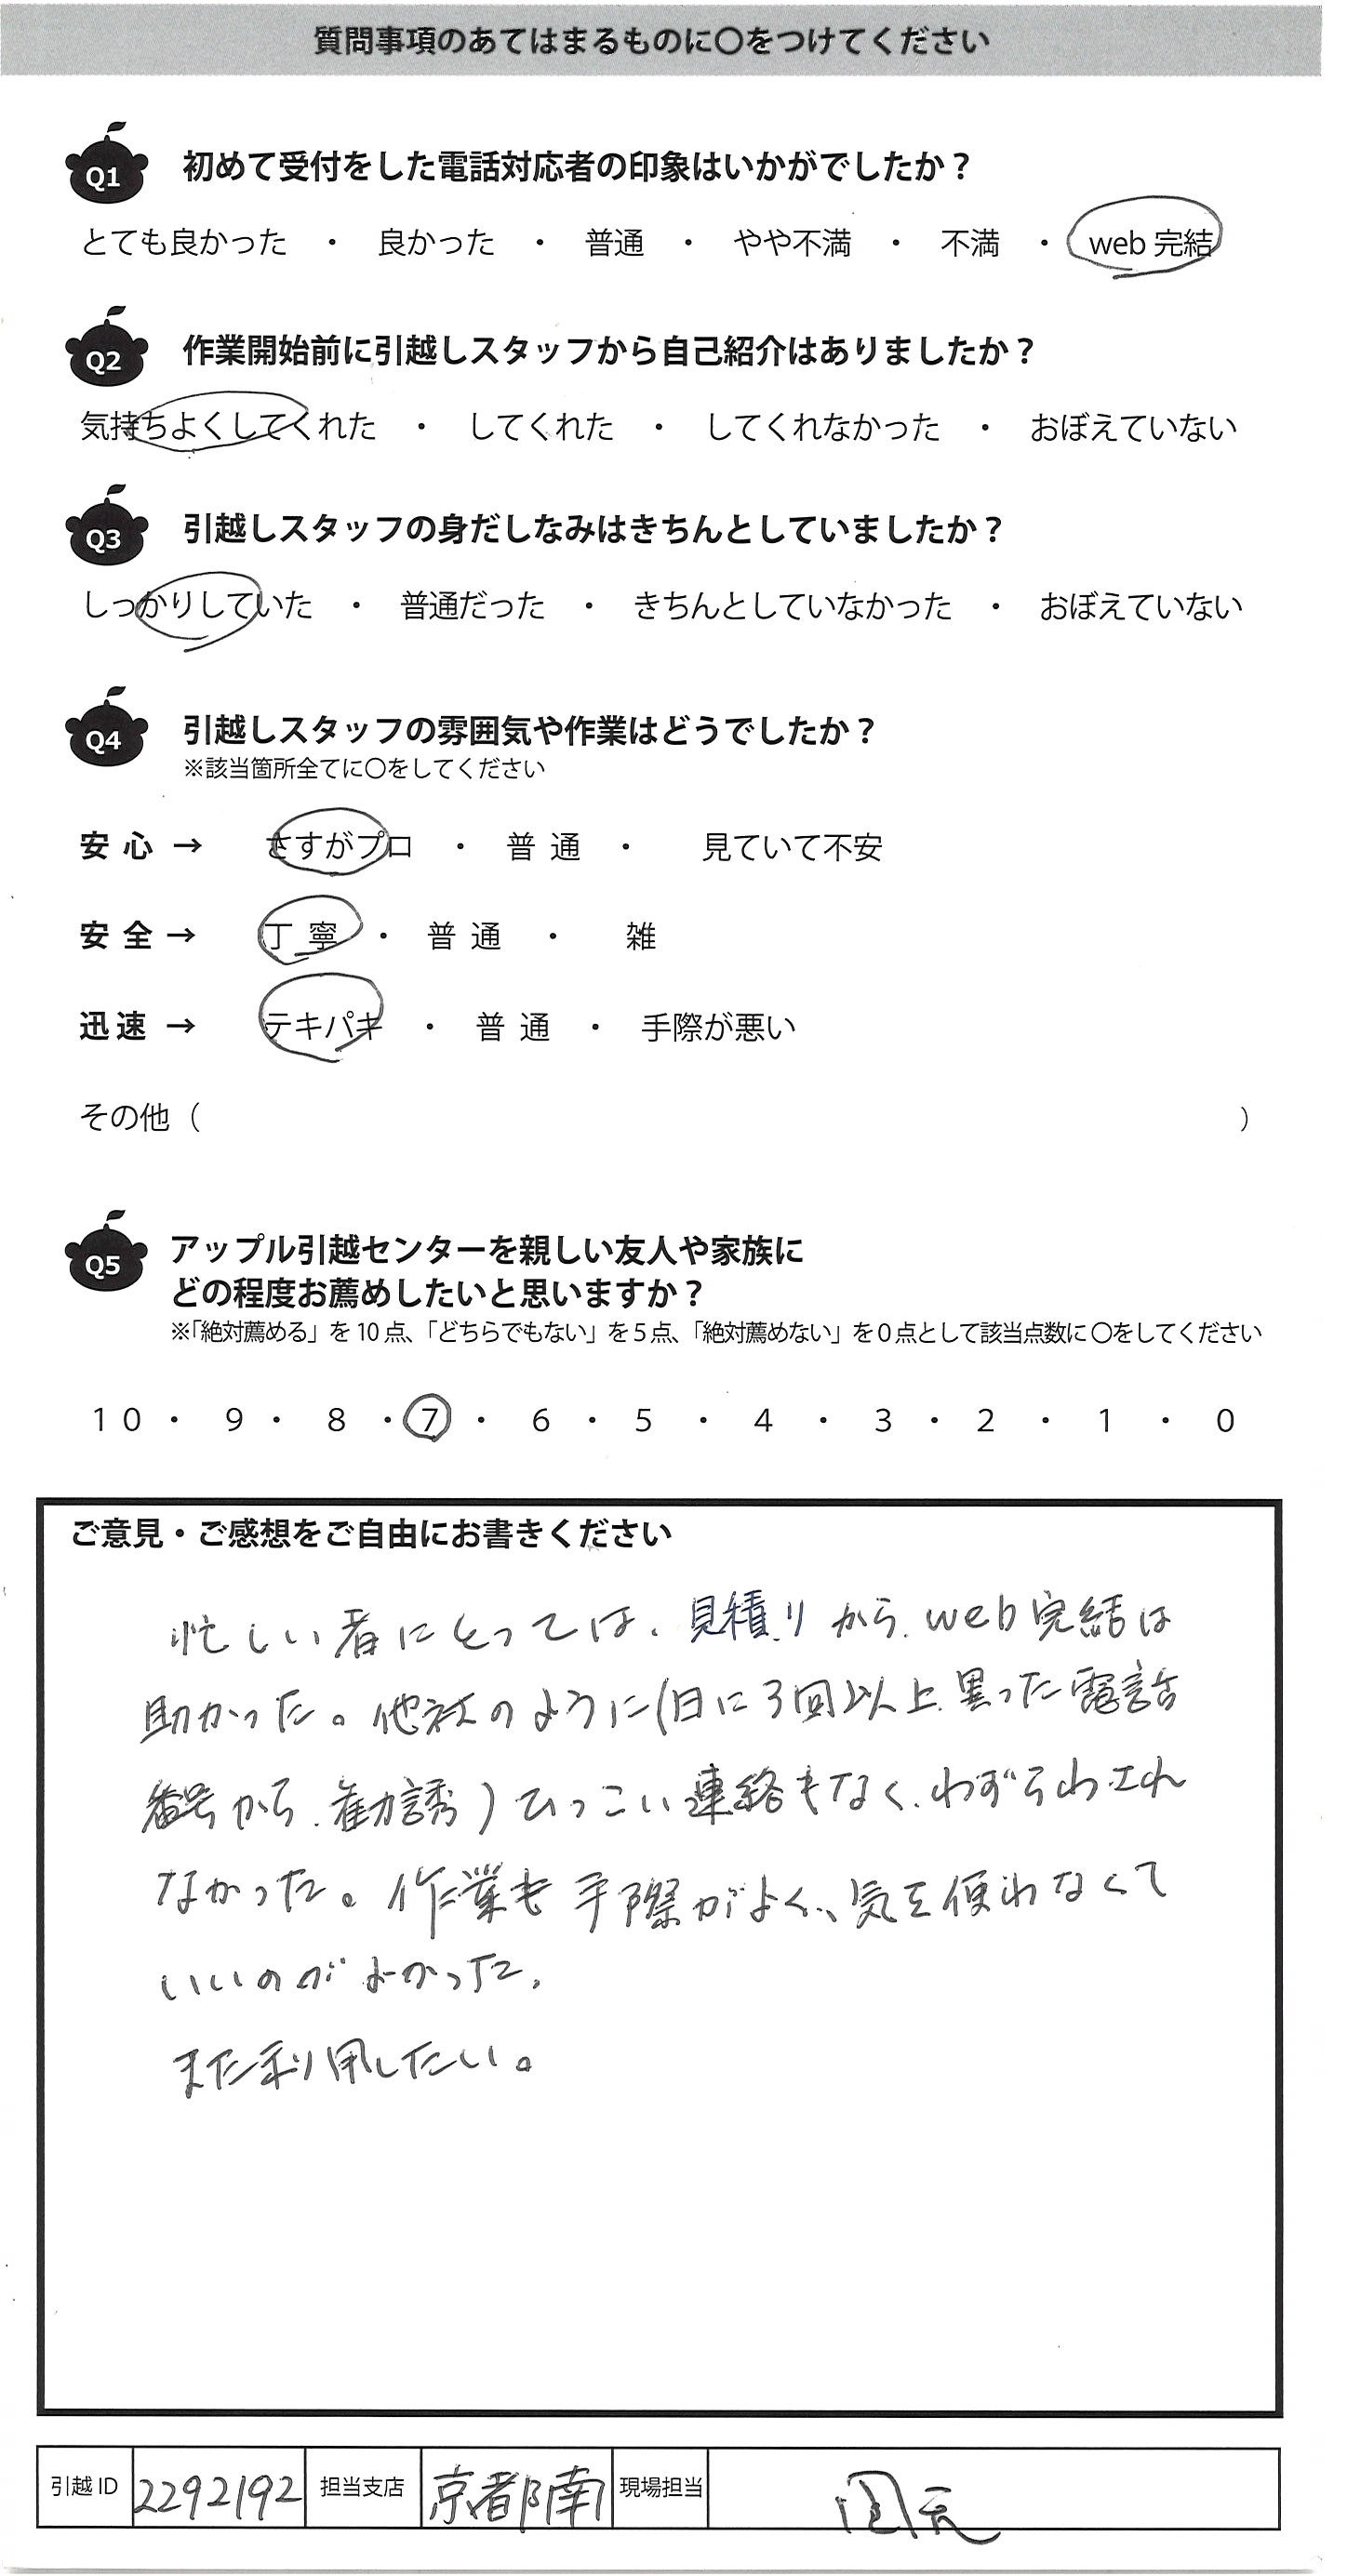 質問事項のあてはまるものに〇をつけてください
Q1 初めて受付をした電話対応者の印象はいかがでしたか？
とても良かった ・ 良かった ・ 普通 ・ やや不満 ・ 不満 ・ web 完結
Q2 作業開始前に引越しスタッフから自己紹介はありましたか？
気持ちよくしてくれた ・ してくれた ・ してくれなかった ・ おぼえていない
Q3 引越しスタッフの身だしなみはきちんとしていましたか？
しっかりしていた ・ 普通だった ・ きちんとしていなかった ・ おぼえていない
Q4 引越しスタッフの雰囲気や作業はどうでしたか？
※該当箇所全てに〇をしてください
安 心 → さすがプロ ・ 普 通 ・ 見ていて不安
安 全 → 丁 寧 ・ 普 通 ・ 雑
迅 速 → テキパキ ・ 普 通 ・ 手際が悪い
その他（ ）
Q5 アップル引越センターを親しい友人や家族に
どの程度お薦めしたいと思いますか？
※「絶対薦める」を 10 点、「どちらでもない」を 5 点、「絶対薦めない」を 0 点として該当点数に 〇をしてください
10 ・ 9 ・ 8 ・ 7 ・ 6 ・ 5 ・ 4 ・ 3 ・ 2 ・ 1 ・ 0
ご意見・ご感想をご自由にお書きください
忙しい者にとっては、見積りから、web完結は
助かった。他社のように(1日に3回以上、異った電話
番号から、勧誘)ひつこい連絡もなく、わずらわされ
なかった。作業も手際がよく、気を使わなくて
いいのがよかった。
また利用したい。
引越 ID 2292192 担当支店 京都南 現場担当